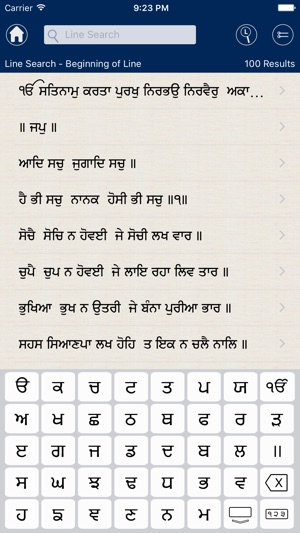 Carrier 9:23 PM
Line Search
Line Search - Beginning of Line 100 Results
ੴ ਸਤਿਨਾਮੁ ਕਰਤਾ ਪੁਰਖੁ ਨਿਰਭਉ ਨਿਰਵੈਰੁ ਅਕਾ...
॥ ਜਪੁ ॥
ਆਦਿ ਸਚੁ ਜੁਗਾਦਿ ਸਚੁ ॥
ਹੈ ਭੀ ਸਚੁ ਨਾਨਕ ਹੋਸੀ ਭੀ ਸਚੁ ॥੧॥
ਸੋਚੈ ਸੋਚਿ ਨ ਹੋਵਈ ਜੇ ਸੋਚੀ ਲਖ ਵਾਰ ॥
ਚੁਪੈ ਚੁਪ ਨ ਹੋਵਈ ਜੇ ਲਾਇ ਰਹਾ ਲਿਵ ਤਾਰ ॥
ਭੁਖਿਆ ਭੁਖ ਨ ਉਤਰੀ ਜੇ ਬੰਨਾ ਪੁਰੀਆ ਭਾਰ ॥
ਸਹਸ ਸਿਆਣਪਾ ਲਖ ਹੋਹਿ ਤ ਇਕ ਨ ਚਲੈ ਨਾਲਿ ॥
ੳ ਕ ਚ ਟ ਤ ਪ ਯ ੴ
ਅ ਖ ਛ ਠ ਥ ਫ ਰ ੜ
ੲ ਗ ਜ ਡ ਦ ਬ ਲ ॥
ਸ ਘ ਝ ਢ ਧ ਭ ਵ X
ਹ ਙ ਞ ਣ ਨ ਮ ੧੨੩